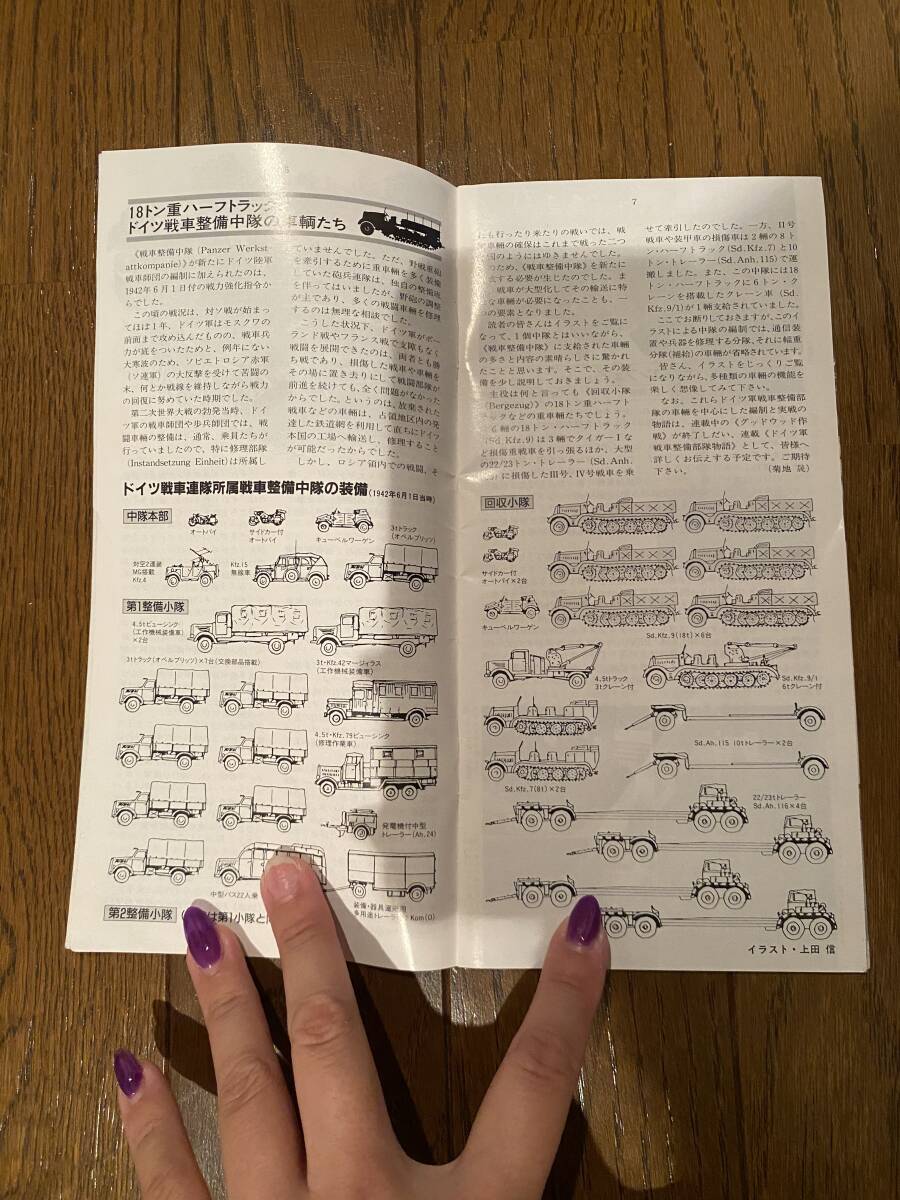 18トン重ハーフトラック
ドイツ戦車整備中隊の車輌たち
《戦車整備中隊（Panzer Werkst-
attkompanie)》が新たにドイツ陸軍
戦車師団の編制に加えられたのは、
1942年6月1日付の戦力強化指令か
らでした。
この頃の戦況は、対ソ戦が始まっ
てほぼ1年、ドイツ軍はモスクワの
前面まで攻め込んだものの、戦車兵
力が底をついたためと、例年にない
大寒波のため、ソビエトロシア赤軍
（ソ連軍）の大反撃を受けて苦闘の
末、何とか戦線を維持しながら戦力
の回復に努めていた時期でした。
第二次世界大戦の勃発当時、ドイ
ツ軍の戦車師団や歩兵師団では、戦
闘車輌の整備は、通常、乗員たちが
行っていましたので、特に修理部隊
(Instandsetzung Einheit)は所属し
ていませんでした。ただ、野戦重砲
を牽引するために重車輌を多く装備
していた砲兵連隊は、独自の整備班
を伴ってはいましたが、野砲の調整
が主であり、多くの戦闘車輌を修理
するのは無理な相談でした。
こうした状況下、ドイツ軍がポー
ランド戦やフランス戦で支障もなく
戦闘を展開できたのは、両者とも勝
ち戦であり、損傷した戦車や車輌を
その場に置き去りにして戦闘部隊が
前進を続けても、全く問題がなかった
からでした。というのは、放棄された
戦車などの車輌は、占領地区内の発
達した鉄道網を利用して直ちにドイツ
本国の工場へ輸送し、修理すること
が可能だったからでした。
しかし、ロシア領内での戦闘、そ
ドイツ戦車連隊所属戦車整備中隊の装備(1942年6月1日当時)
中隊本部
オートバイ
サイドカー付
オートバイ
キューベルワーゲン
3tトラック
（オペルブリッツ）
対空2連装
MG搭載
Kfz.4
Kfz.15
無線車
第1整備小隊
4.5tビューシンク
（工作機械装備車）
×2台
3tトラック(オペルブリッツ)×7台(交換部品搭載)
3t・Kfz.42マージィラス
（工作機械装備車）
4.5t・Kfz.79ビューシンク
（修理作業車）
発電機付中型
トレーラー(Ah.24)
中型バス22人乗
装備・器具運搬用
多用途トレーラー：Kom(O)
第2整備小隊
は第1小隊と
7
にも行ったり来たりの戦いでは、戦
車輌の確保はこれまで戦った二つ
国のようにはゆきませんでした。
つため、《戦車整備中隊》を新たに
成する必要が生じたのでした。ま
戦車が大型化してその輸送に特
な車輌が必要になったことも、一
つの要素となりました。
読者の皆さんはイラストをご覧に
なって、1個中隊とはいいながら、
《戦車整備中隊》に支給された車輌
の多さと内容の素晴らしさに驚かれ
たことと思います。そこで、その装
備を少し説明しておきましょう。
主役は何と言っても《回収小隊
(Bergezug)》の18トン重ハーフト
ラックなどの重車輌たちでしょう。
6輌の18トン・ハーフトラック
(Sd Kfz.9)は3輌でタイガーIな
ど損傷重戦車を引っ張るほか、大型
の22/23トン・トレーラー(Sd.Anh.
に損傷したIII号、IV号戦車を乗
せて牽引したのでした。一方、II号
戦車や装甲車の損傷車は2輌の8ト
ン・ハーフトラック(Sd.Kfz.7)と10
トン・トレーラー(Sd.Anh.115)で運
搬しました。また、この中隊には18
トン・ハーフトラックに6トン・ク
レーンを搭載したクレーン車(Sd.
Kfz.9/1)が1輌支給されていました。
ここでお断りしておきますが、このイ
ラストによる中隊の編制では、通信装
置や兵器を修理する分隊、それに輜重
分隊（補給）の車輌が省略されています。
皆さん、イラストをじっくりご覧
になりながら、多種類の車輌の機能を
楽しく想像してみて下さい。
なお、これらドイツ軍戦車整備部
隊の車輌を中心にした編制と実戦の
物語は、連載中の《グッドウッド作
戦》が終了しだい、連載《ドイツ軍
戦車整備部隊物語》として、皆様へ
詳しくお伝えする予定です。ご期待
下さい。（菊地 晟）
回収小隊
サイドカー付
オートバイ×2台
キューベルワーゲン
Sd.Kfz.9(18t)×6台
4.5tトラック
3tクレーン付
Sd.Kfz.9/1
6tクレーン付
Sd.Ah.115 10tトレーラー×2台
Sd.Kfz.7(8t)×2台
22/23tトレーラー
Sd.Ah.116×4台
イラスト・上田 信